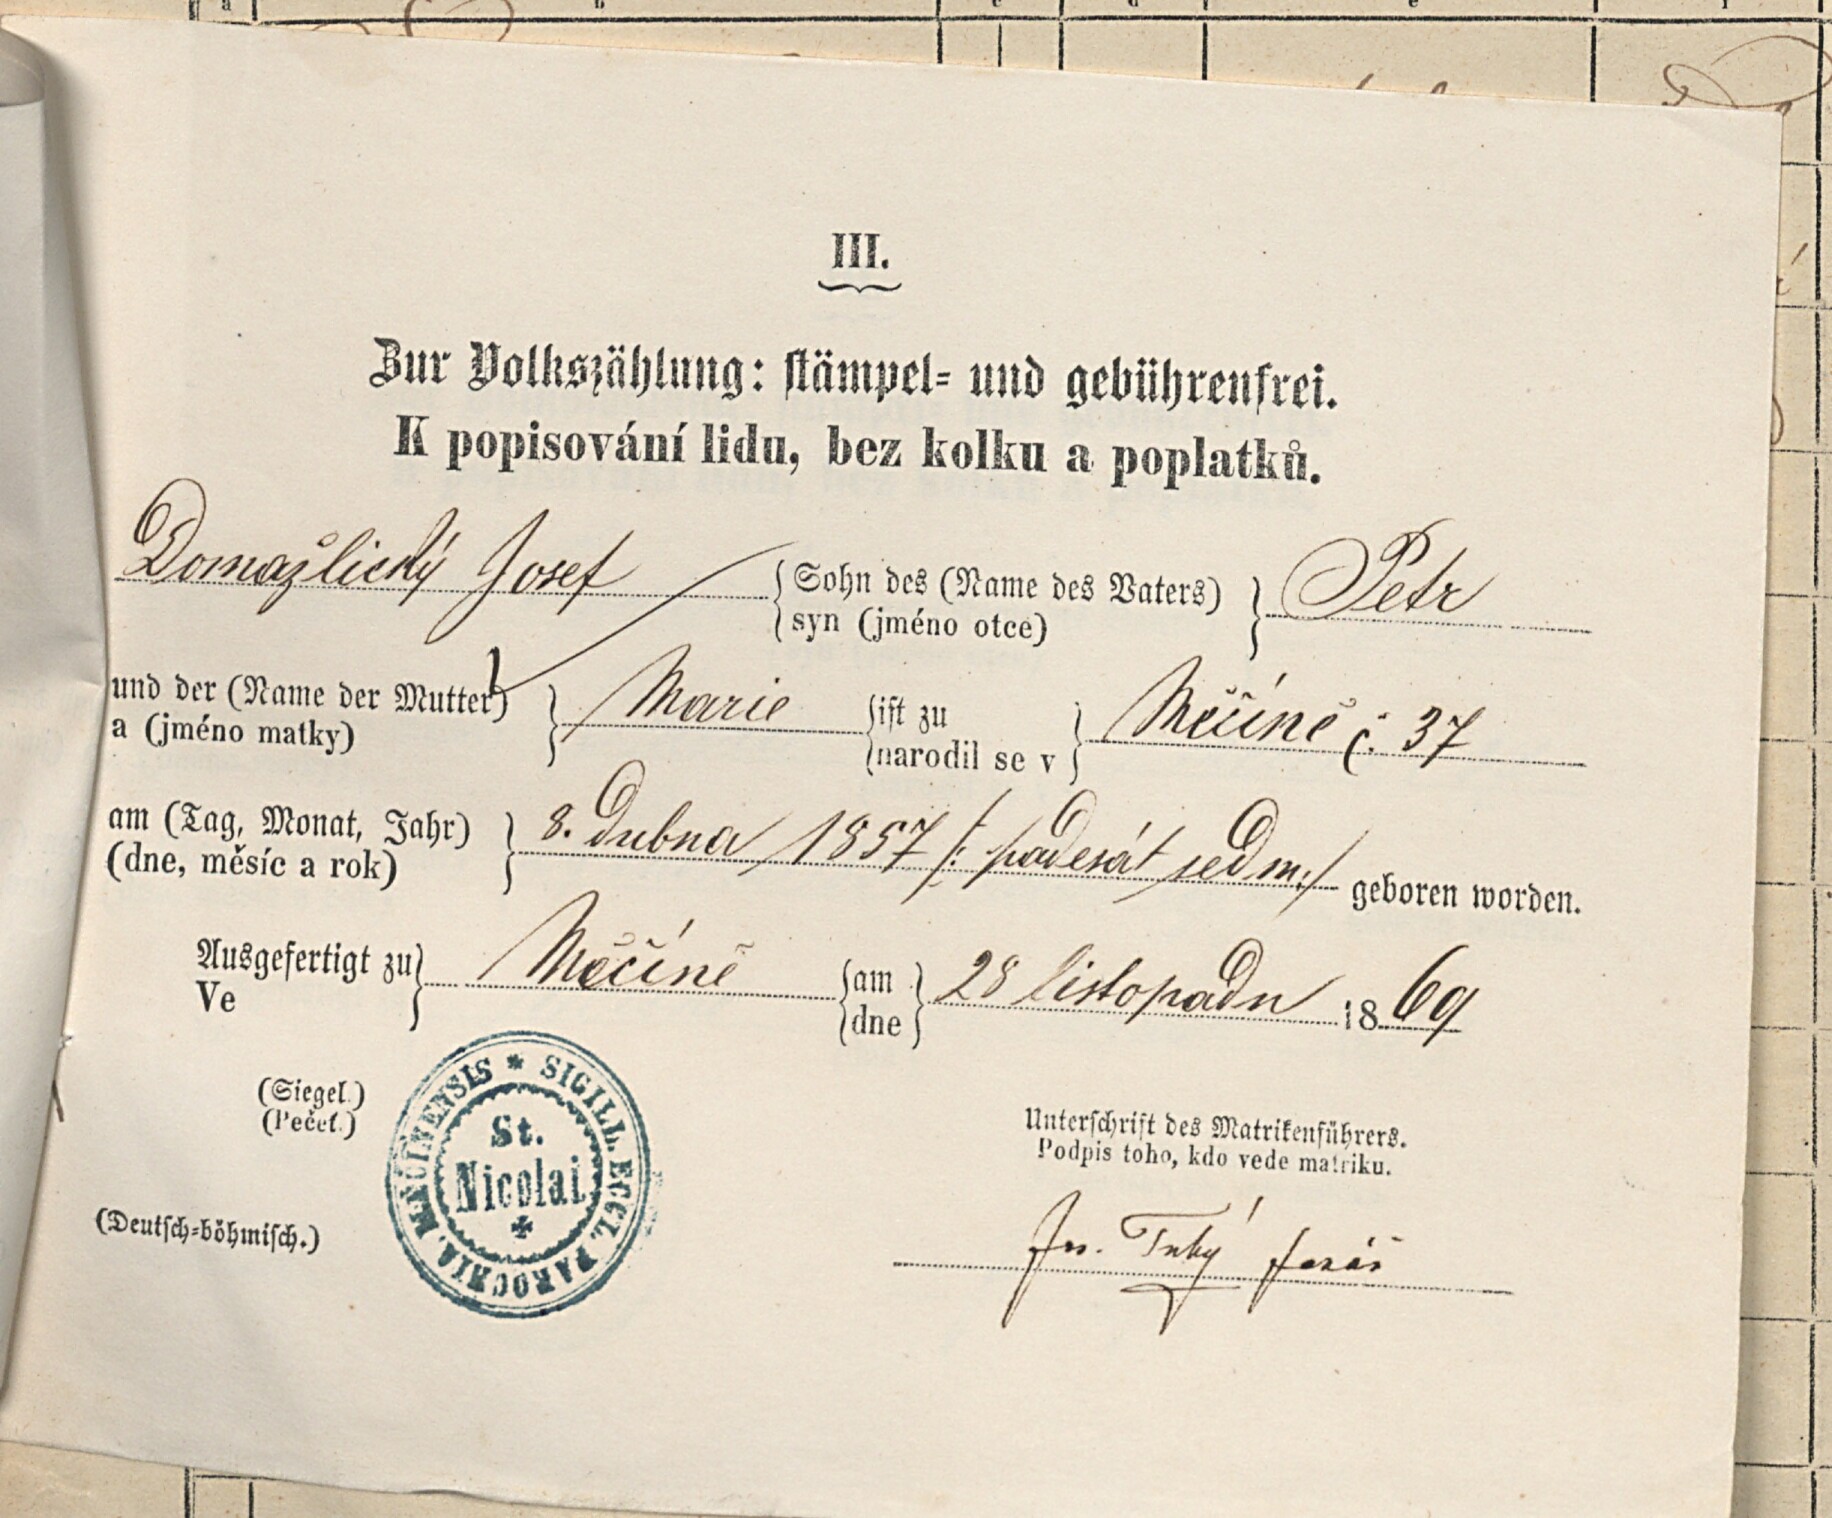 III.
Zur Volkszählung: stämpel- und gebührenfrei.
K popisování lidu, bez kolku a poplatků.
Domažlický Josef { Sohn des (Name des Vaters) } Petr
syn (jméno otce)
und der (Name der Mutter) } Marie { ist zu } Měčíně č: 37
a (jméno matky) narodil se v
am (Tag, Monat, Jahr) } 8. dubna 1857 /: padesát sedm :/ geboren worden.
(dne, měsíc a rok)
Ausgefertigt zu } Měčíně { am } 28 listopadu 1869
Ve dne
(Siegel.)
(Pečeť.)
SIGILL. ECCL. PAROCHIA. MNČINENSIS
St.
Nicolai
Unterschrift des Matrikenführers.
Podpis toho, kdo vede matriku.
(Deutsch-böhmisch.)
farář